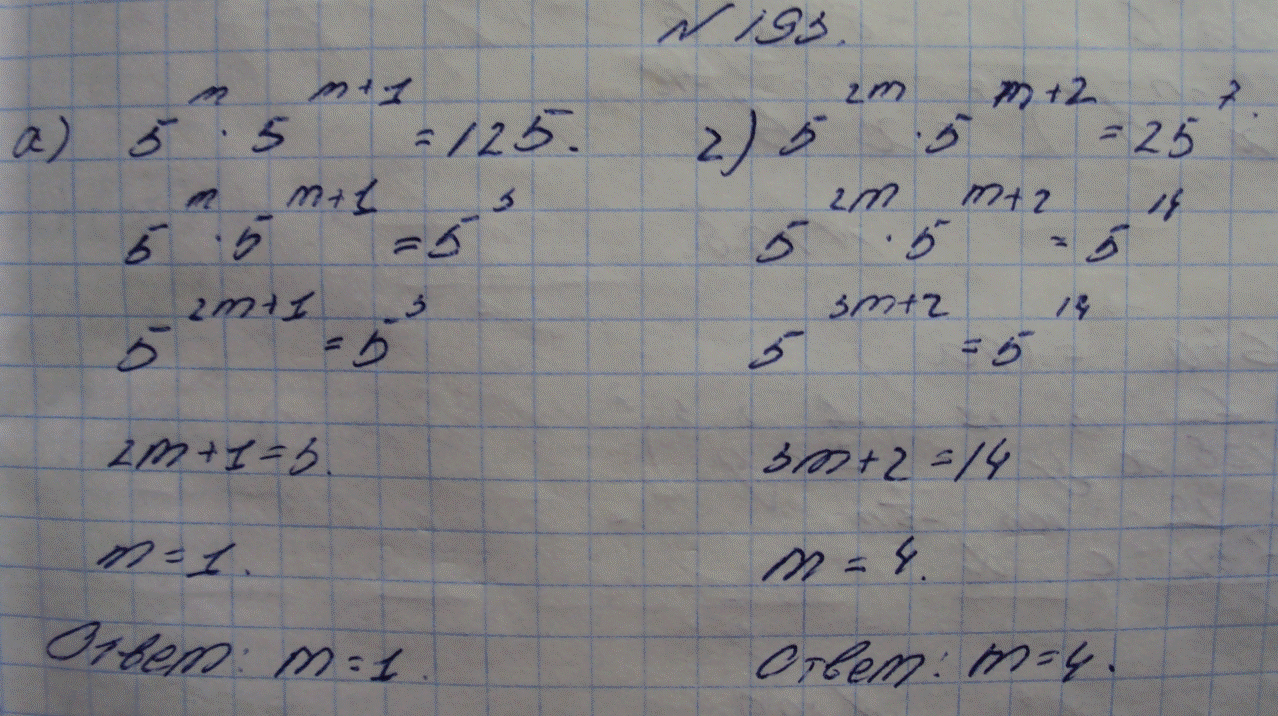 № 193.
а) 5^m · 5^{m+1} = 125.
5^m · 5^{m+1} = 5^3
5^{2m+1} = 5^3
2m+1=3.
m=1.
Ответ: m=1.
г) 5^{2m} · 5^{m+2} = 25^7.
5^{2m} · 5^{m+2} = 5^{14}
5^{3m+2} = 5^{14}
3m+2=14
m=4.
Ответ: m=4.